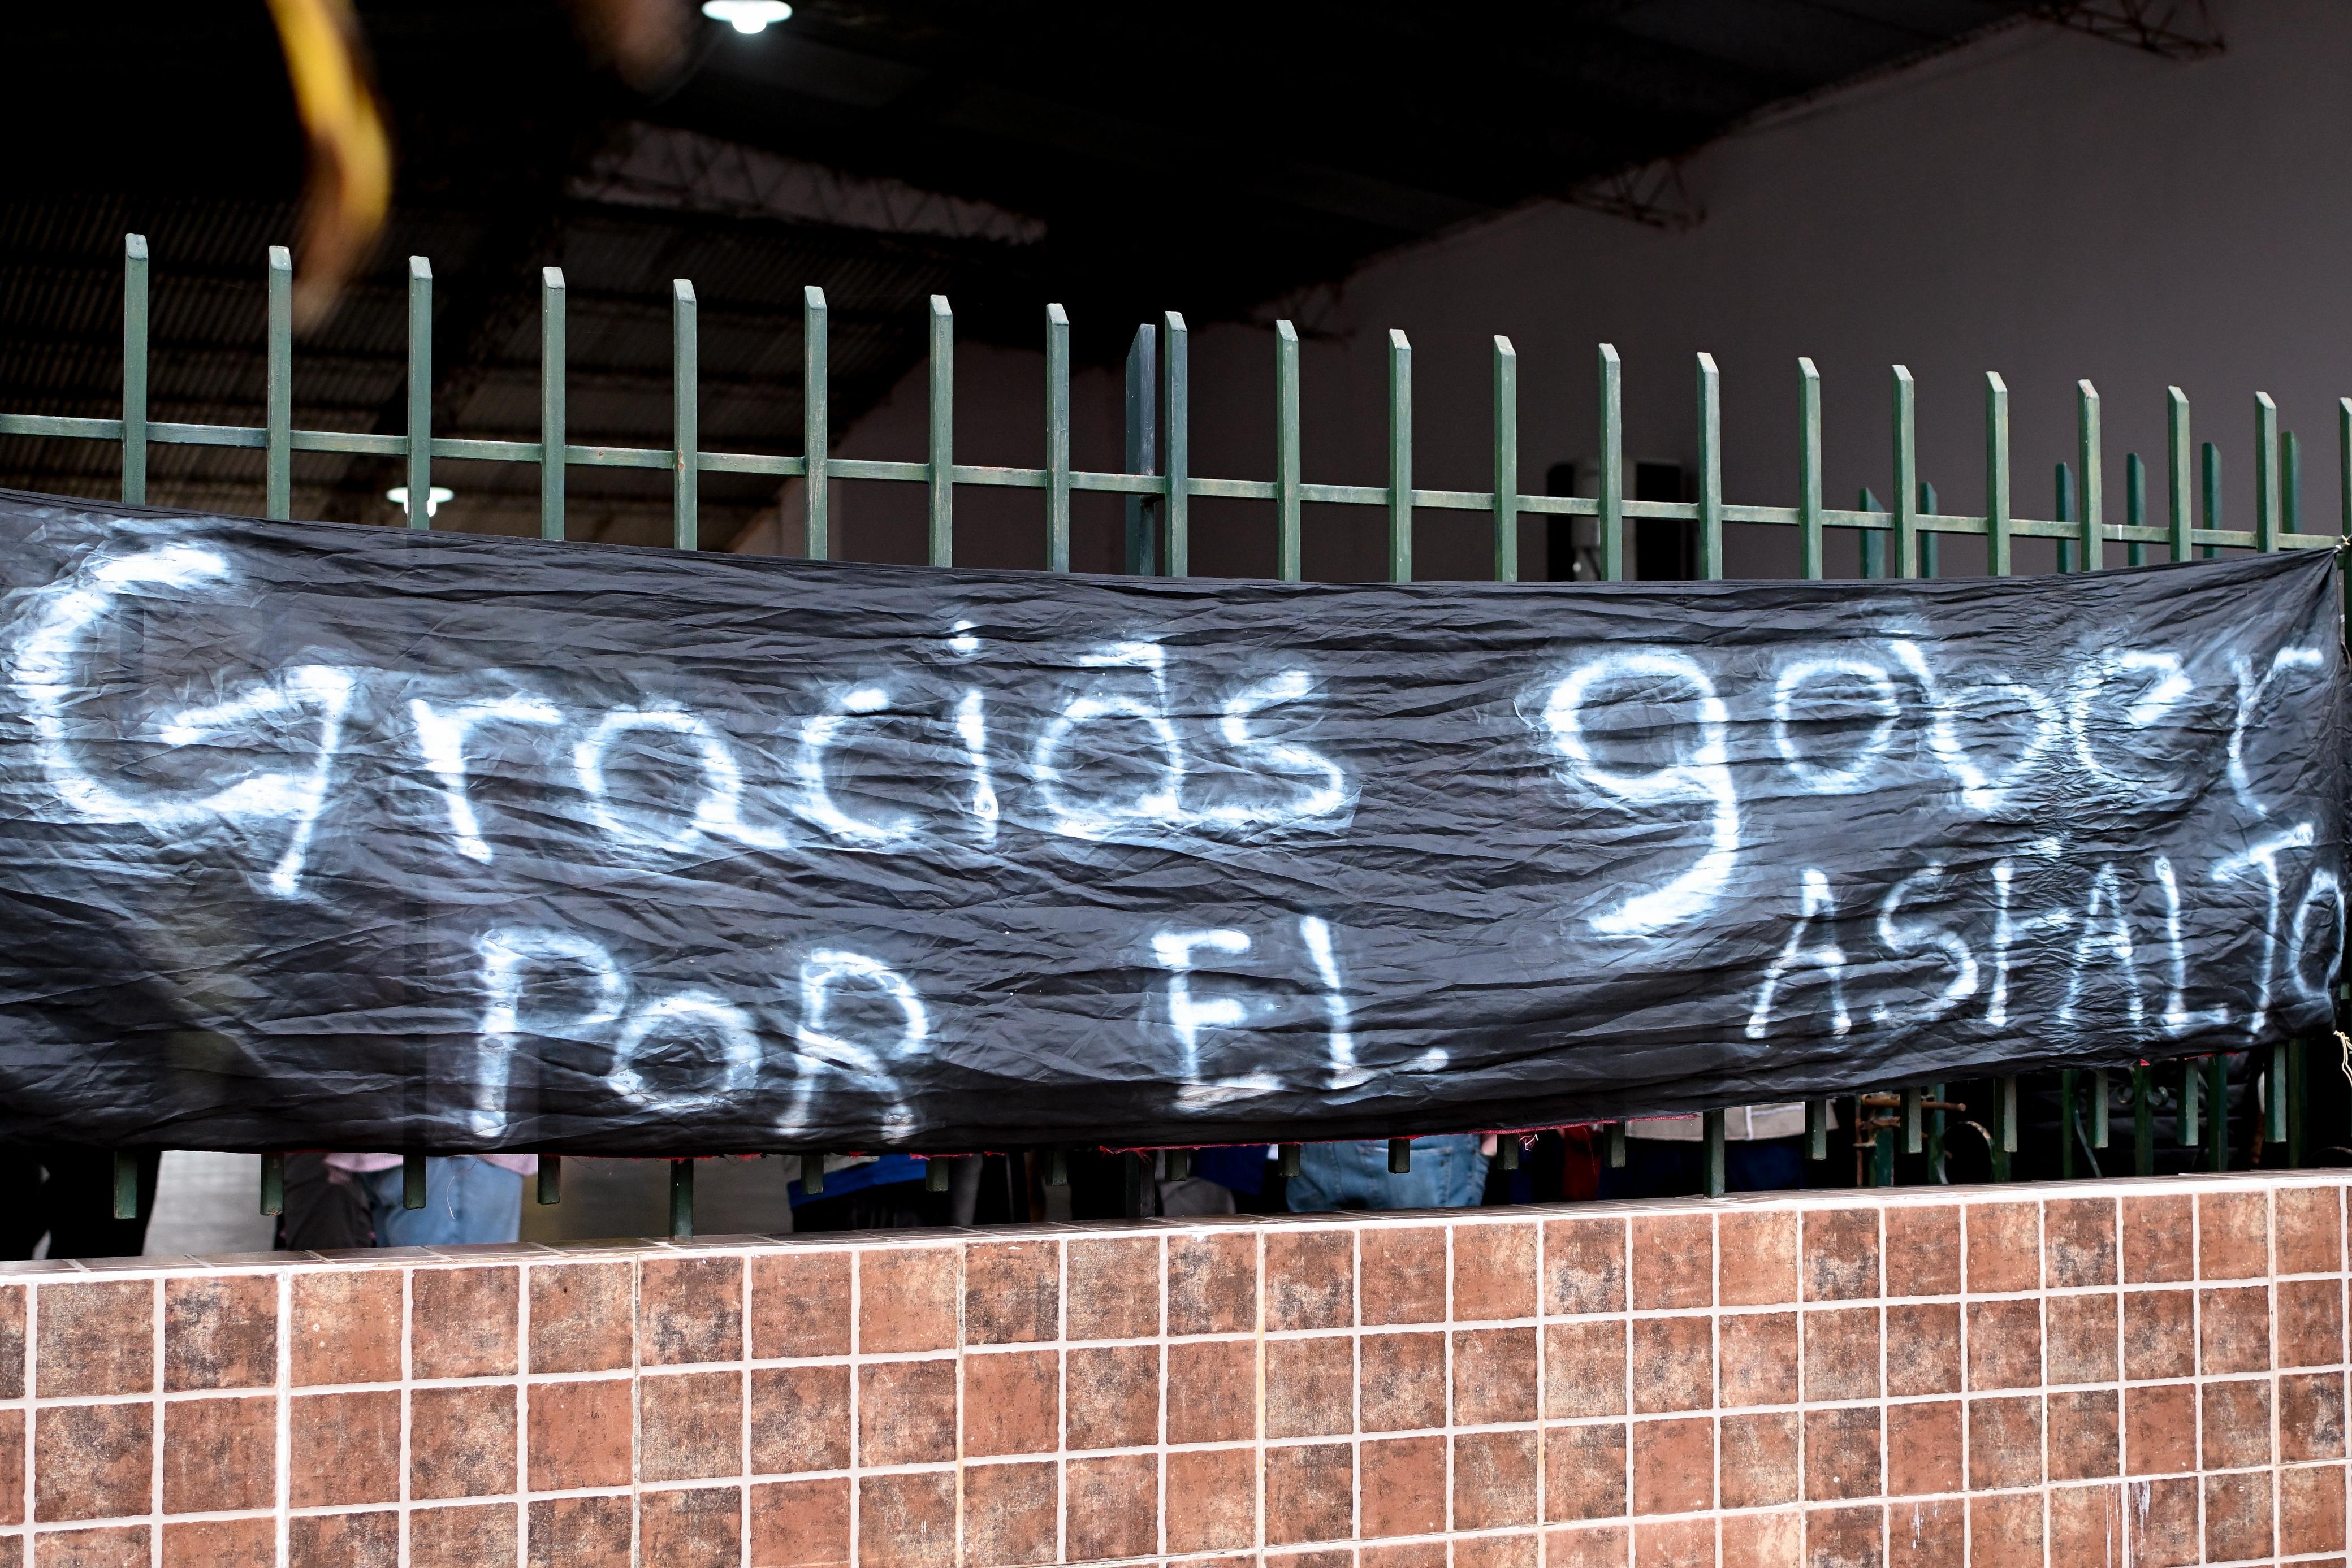 Gracias gober
PoR EL. ASFALTO